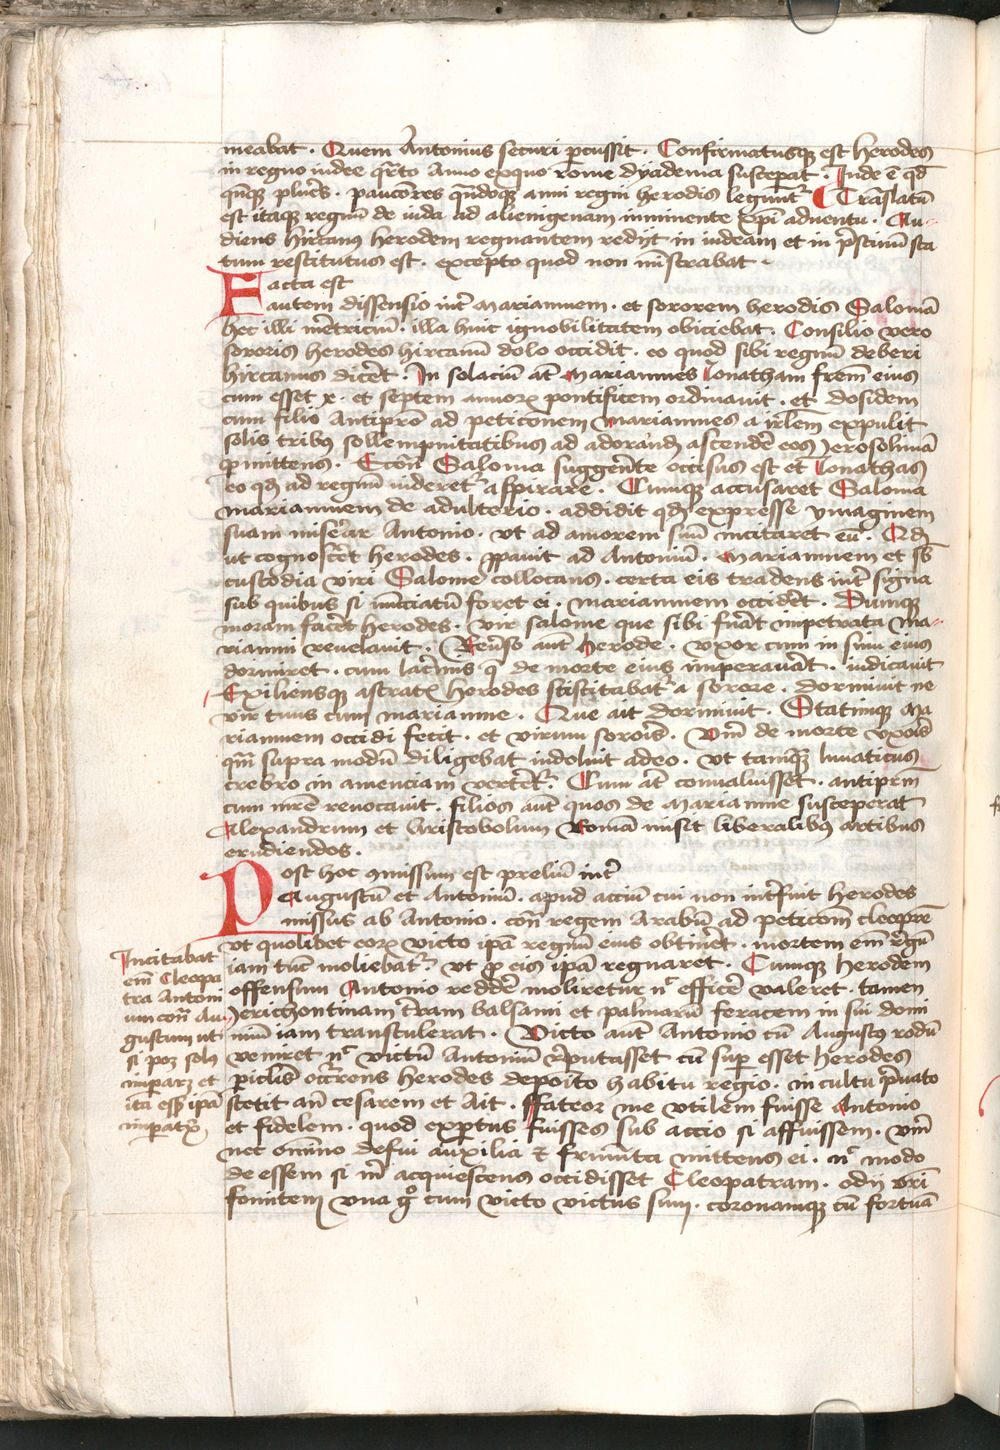 meabat . Quem Antonius securi ꝑcussit . Confirmatusqꝫ est herodes
in regno iudee qͣrto Anno exquo rome dyadema susceꝑat . Inde ē qd̄
qn̄qꝫ plures . pauciores qn̄doqꝫ anni regni herodis legunt᷑ ¶ Tr̄aslatū
est itaqꝫ regnū de iuda ad alienigenam imminente xp̄i aduentu . Au-
diens hircanꝰ herodem regnantem redijt in iudeam et in pͥstinū sta
tum restitutus est . excepto quod non mīstrabat .
Facta est
autem dissensio int̄ mariamnem . et sororem herodis Salomā
hec illi meretriciū . illa huic ignobilitatem obiciebat . Consilio vero
sororis herodes hircanū dolo occidit . eo quod sibi regnū deberi
hircanus dicēt . In solaciū at̄ Mariamnes Ionatham frēm eius
cum esset x . et septem annorꝝ pontificem ordinauit . et dosidem
cum filio Antipr̄o ad peticōnem mariamnes a irl̄em expulit
solis tribꝰ sollempnitatibus ad adorand̄ ascendē eos Jerosolimā
ꝑmittens . Et cōn Saloma suggerēte occisus est et Ionathas
eo qd̄ ad regnū videret᷑ aspirare . Cumqꝫ accusaret Saloma
mariamnem de adulterio . addidit qd̄ expresse ymaginem
suam miserat Antonio . vt ad amorem suū incitaret eū . Qd̄
ut cognoscēt herodes . ꝓpauit ad Antoniū . Mariamnem et sb̄
custodia viri Salome collocans . certa eis tradens int̄ signa
sub quibus si nūciatū foret ei . mariamnem occidēt . Dumqꝫ
moram facēt herodes . vir salome que sibi fuāt impetrata ma-
riamni reuelauit . Reuerso aut̄ herode . vxor cum in sinu eius
dormiret . cum lacrimis qͥ de morte eius imperauāt . indicauit
Exiliensqꝫ a strato herodes sciscitabat᷑ a sorore . dormiuit ne
vir tuus cum mariamne . Que ait dormiuit . Statimqꝫ Ma
riamnem occidi fecit . et virum sororis . Vnī de morte vxoris
qm̄ supra modū diligebat indoluit adeo . vt tamqͣꝫ lunaticus
crebro in amenciam verteret᷑ . Cum at̄ conualuisset . antipr̄m
cum mr̄e reuocauit . filios aut̄ quos de Mariamne susceperat
Alexandrum et Aristobolum Romā misit liberalibꝰ artibus
erudiendos .
Post hoc ꝯmissum est preliū int̄
Augustū et Antoniū . apud acciū cui non intrfuit herodes
missus ab Antonio . cōn regem Arabū ad peticōm cleopre
vt quolibet eorꝝ victo ipa regnū eius obtinēt . mortem em̄ regū
iam tūc moliebat᷑ . vt ꝓ eis ipa regnaret . Cumqꝫ herodem
offensum Antonio reddē moliretur nͨ efficē valeret . tamen
Jerichontinam trām balsami et palmarū feracem in sui domi
nium iam transtulerat . Victo aut̄ Antonio cū Augustꝰ rodū
veniret nͨ victū Antoniū reputasset cū suꝑ esset herodes
periclis occurens herodes deposito habitu regio . in cultu pͥuato
stetit an̄ cesarem et Ait . ffateor me vtilem fuisse Antonio
et fidelem . quod exꝑtus fuisses sub accio si affuissem . vnī
nec omnino defui auxilia & frumēta mittens ei . nͨ modo
de essem si mͥ acquiescens occidisset Cleopatram . odij vr̄i
fomitem vna gͦ cum victo victus sum . coronamqꝫ cū fortuā
Incitabat
em̄ Cleopa
tra Antoni
um cōn Au-
gustum ut
si poꝫ solꝰ
imparꝫ et
ita esset ipa
imperatꝰ